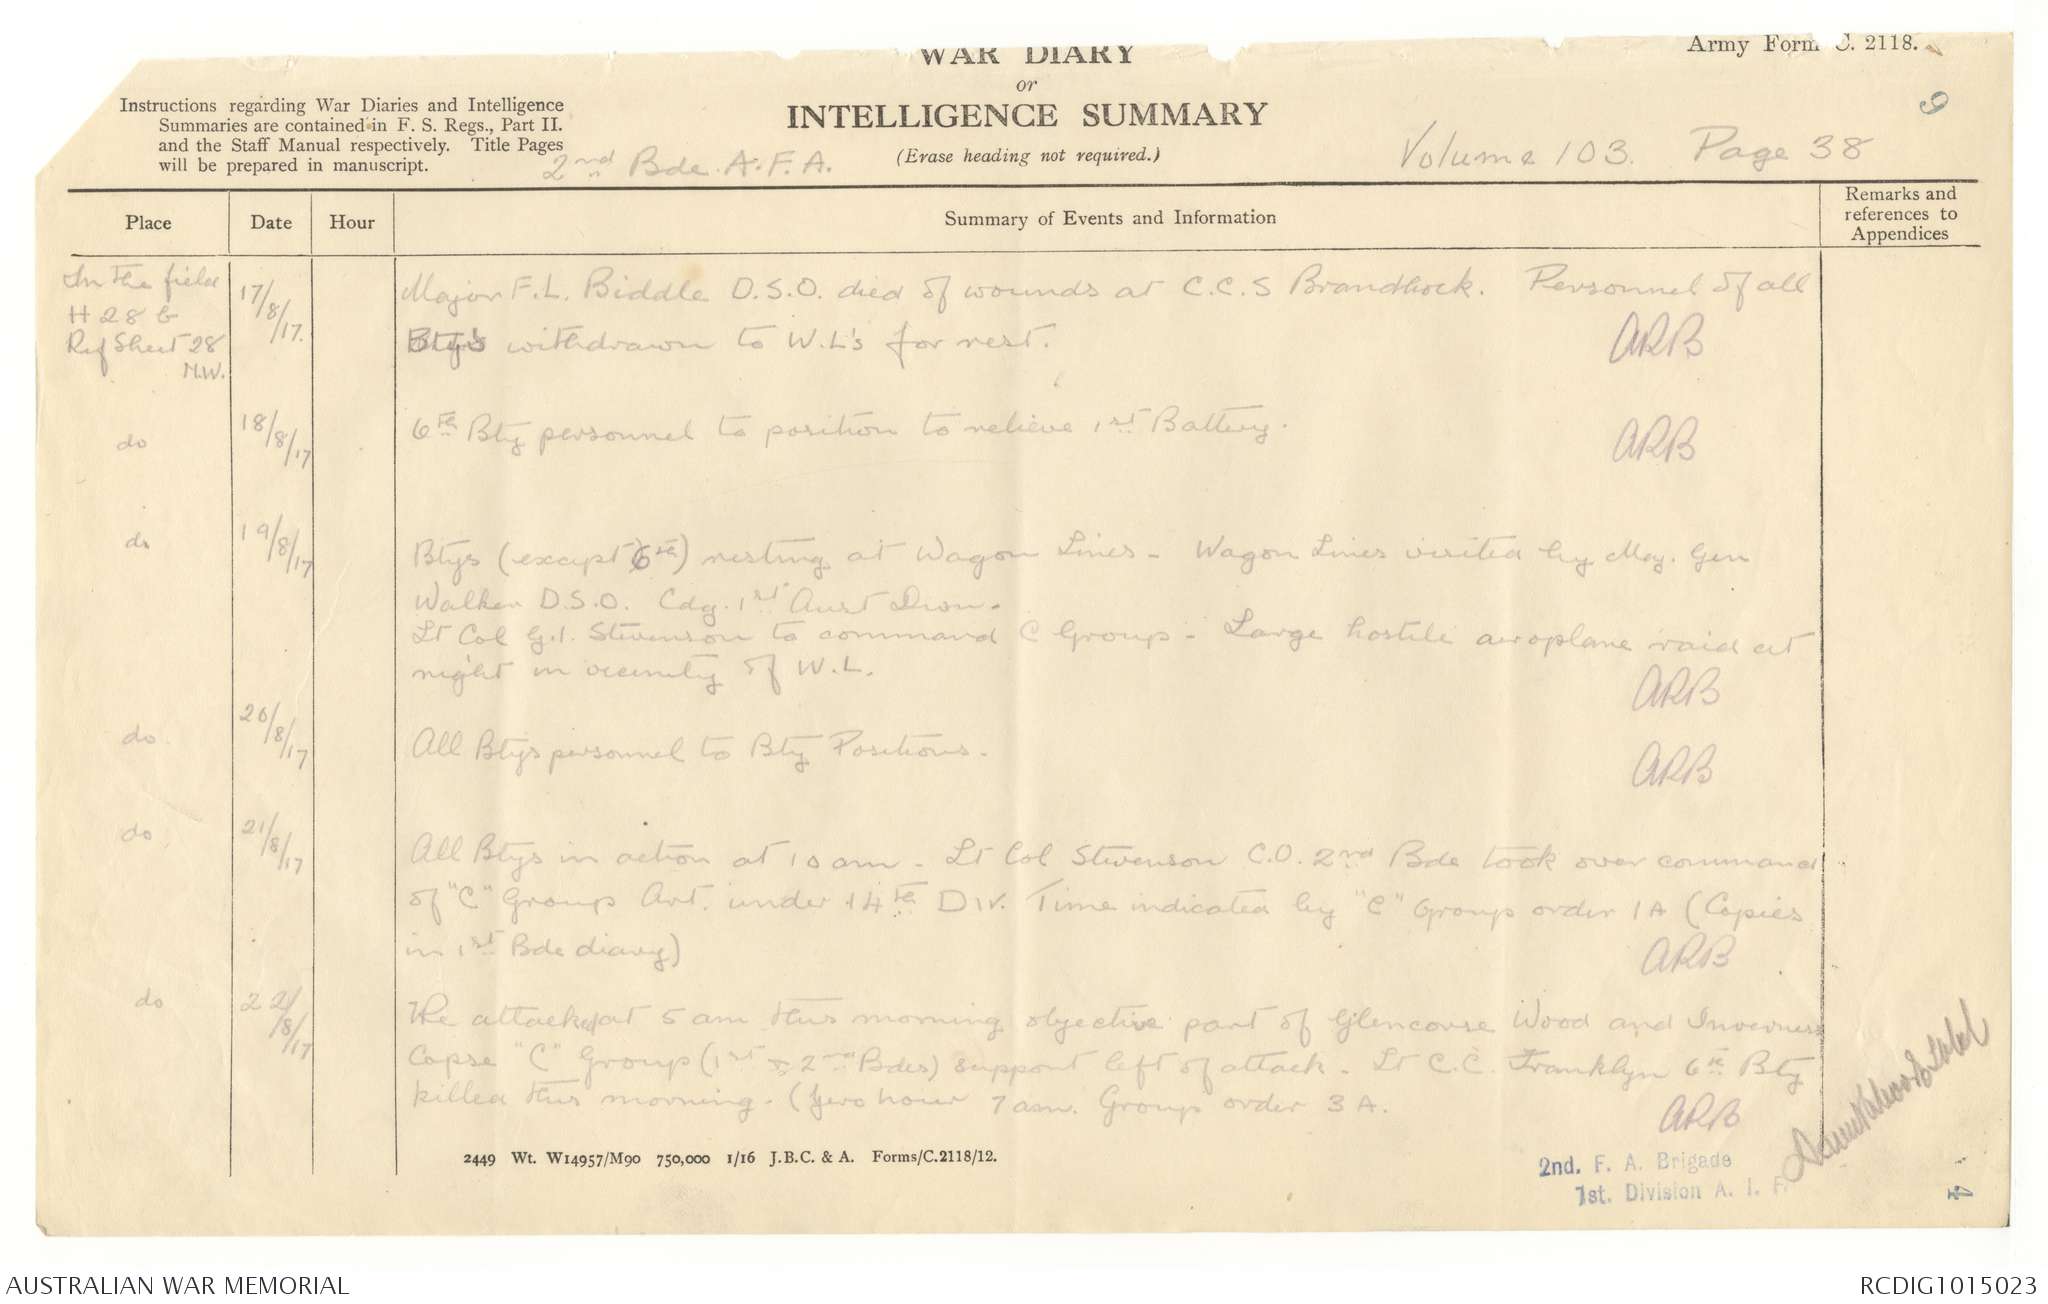 WAR DIARY
or
INTELLIGENCE SUMMARY
(Erase heading not required.)
Army Form C. 2118.
9
Instructions regarding War Diaries and Intelligence
Summaries are contained in F. S. Regs., Part II.
and the Staff Manual respectively. Title Pages
will be prepared in manuscript.
2nd Bde. A.F.A.
Volume 103. Page 38
Place
Date
Hour
Summary of Events and Information
Remarks and
references to
Appendices
In the field
H 28 b
Ref Sheet 28
N.W.
17/8/17.
Major F.L. Biddle D.S.O. died of wounds at C.C.S Brandhock. Personnel of all
Btys withdrawn to W.L's for rest.
ARB
do
18/8/17
6th Bty personnel to position to relieve 1st Battery.
ARB
do
19/8/17
Btys (except 6th) resting at Wagon Lines - Wagon Lines visited by Maj. Gen
Walker D.S.O. Cdg. 1st Aust Divn.
Lt Col G.I. Stevenson to command C Group - Large hostile aeroplane raid at
night in vicinity of W.L.
ARB
do
20/8/17
All Btys personnel to Bty Positions.
ARB
do
21/8/17
All Btys in action at 10 am - Lt Col Stevenson C.O. 2nd Bde took over command
of "C" Group Art. under 14th Div. Time indicated by "C" Group order 1A (Copies
in 1st Bde diary)
ARB
do
22/8/17
The attack at 5 am this morning objective part of Glencorse Wood and Inverness
Copse "C" Group (1st & 2nd Bdes) support left of attack. Lt C.C. Franklyn 6th Bty
killed this morning. (Zero hour 7 am. Group order 3 A.
ARB
2449 Wt. W14957/M90 750,000 1/16 J.B.C. & A. Forms/C.2118/12.
2nd. F. A. Brigade
1st. Division A. I. F.
4
AUSTRALIAN WAR MEMORIAL
RCDIG1015023